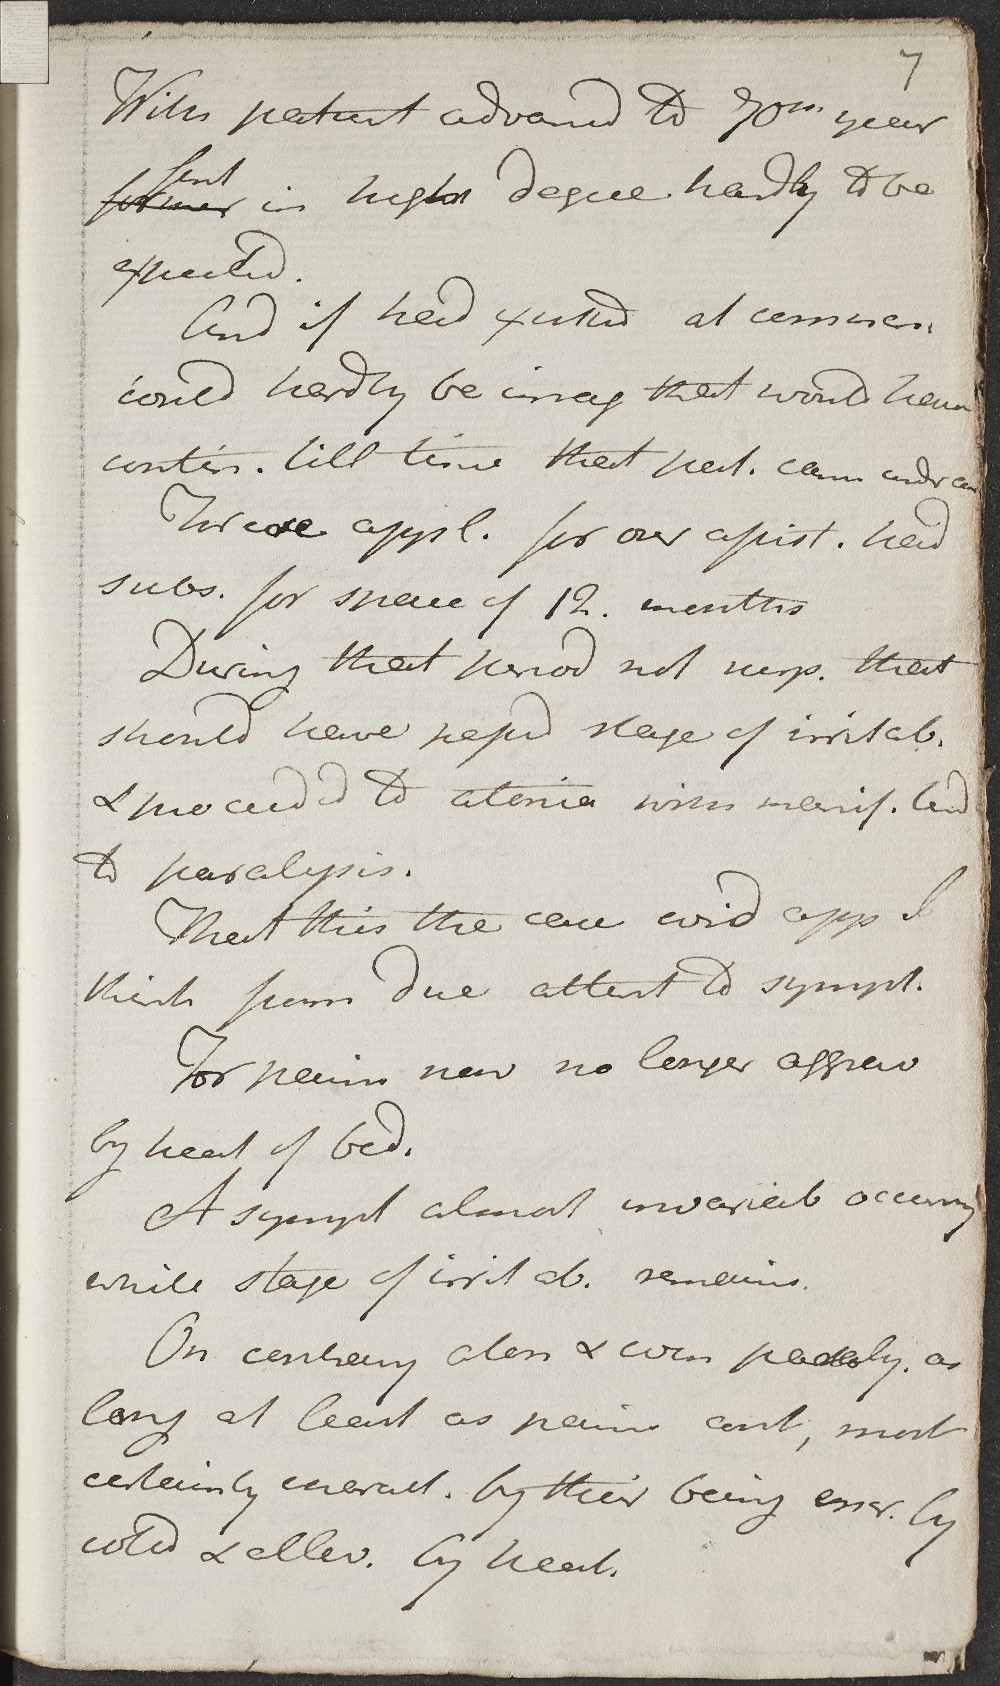 7
With patient advanced to 70th year
first
former in higher degree hardly to be
expected.
And if had existed at commen.
could hardly be imag that would have
contin. till time that pat. came under care
For case appl. for our assist. had
subs. for space of 12. months
During that period not surp. that
should have passed stage of irritab.
& proceeded to atonia with manif. tend
to paralysis.
That this the case evid app I
think from due attent to sympt.
For pains now no longer aggrav
by heat of bed.
A sympt almost invariab occurring
while stage of irritab. remains.
On contrary aton & even paraly. as
long at least as pains cont, most
certainly charact. by their being exasp. by
cold & allev. by heat.